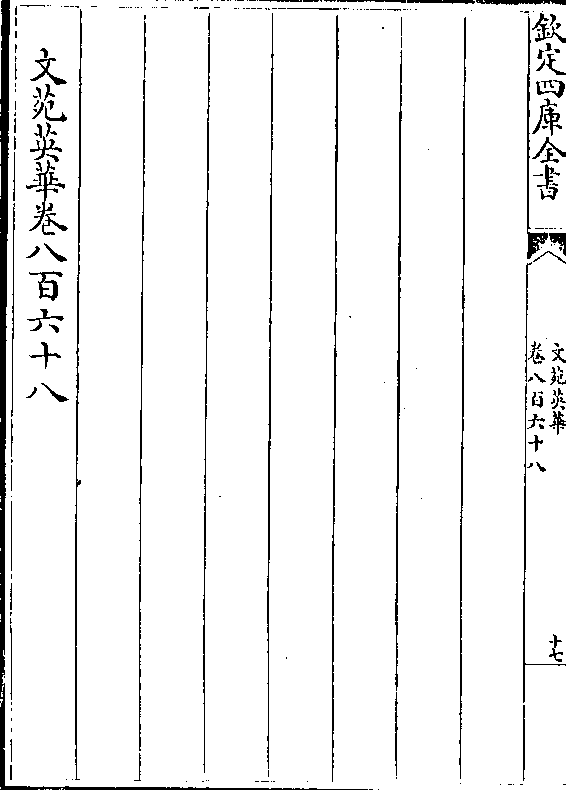 欽定四庫全書
文苑英華
卷八百六十八
十七
文苑英華卷八百六十八